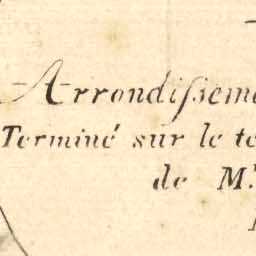 Arrondiſseme
Terminé sur le te
de M.